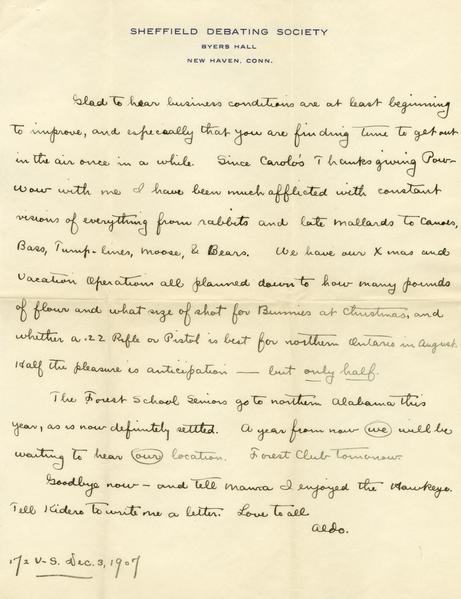 SHEFFIELD DEBATING SOCIETY
BYERS HALL
NEW HAVEN, CONN.
Glad to hear business conditions are at least beginning
to improve, and especially that you are finding time to get out
in the air once in a while. Since Carolo's Thanksgiving Pow-
wow with me I have been much afflicted with constant
visions of everything from rabbits and late mallards to Canoes,
Bass, Tump-lines, Moose, & Bears. We have our Xmas and
Vacation Operations all planned down to how many pounds
of flour and what size of shot for Bunnies at Christmas, and
whether a .22 Rifle or Pistol is best for northern Ontario in August.
Half the pleasure is anticipation — but only half.
The Forest School Seniors go to northern Alabama this
year, as is now definitely settled. A year from now we will be
waiting to hear our location. Forest Club tomorrow.
Goodbye now — and tell mama I enjoyed the Hawkeye.
Tell Kidero to write me a letter. Love to all
Aldo.
172 V-S. Dec. 3, 1907